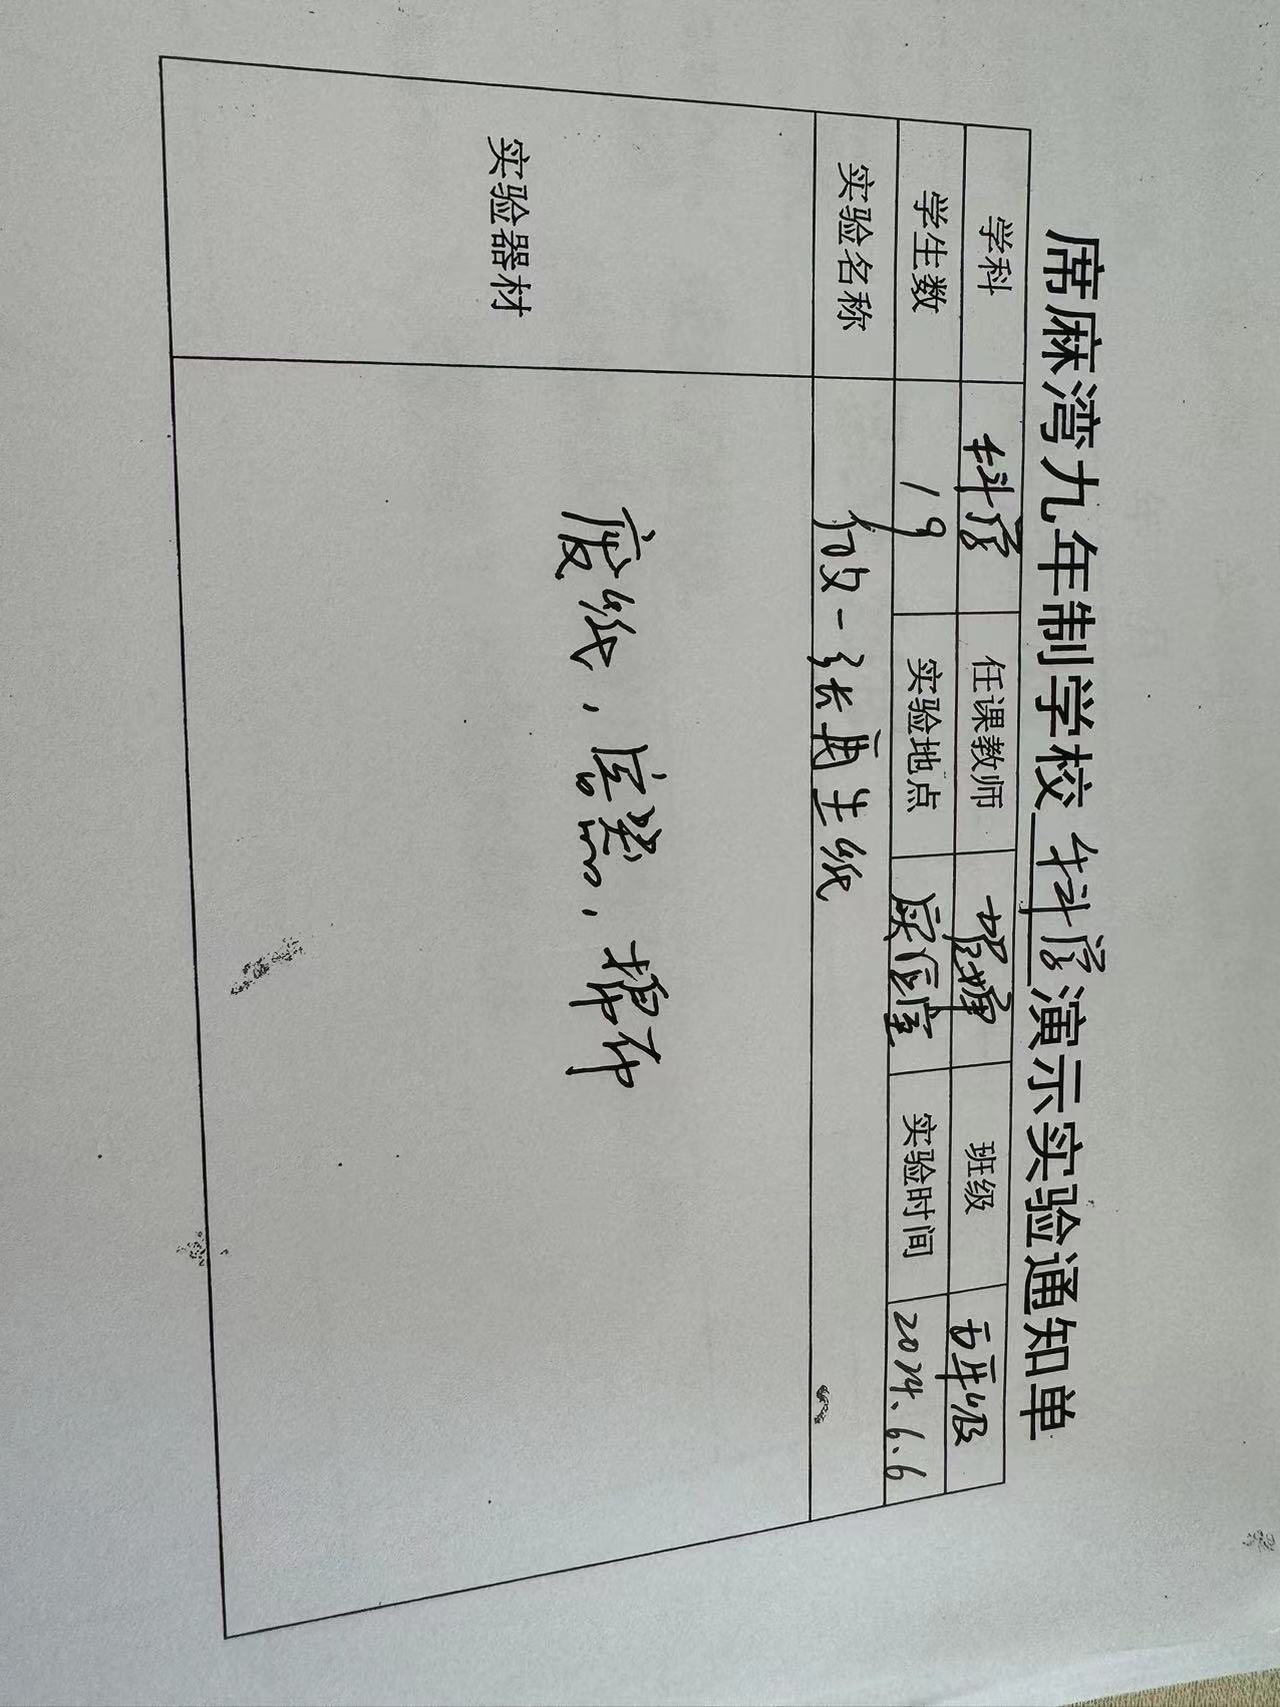 席麻湾九年制学校 科学 演示实验通知单
学科 科学 任课教师 班级 五年级
学生数 19 实验地点 实验室 实验时间 2024.6.6
实验名称 做一张再生纸
实验器材 废纸，容器，棉布